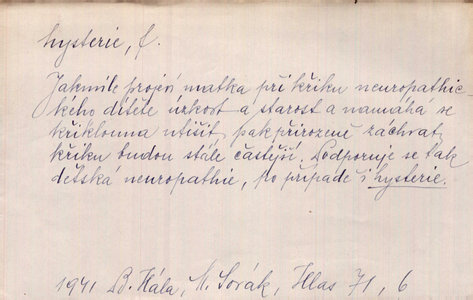 hysterie, f.
Jakmile projeví matka při křiku neuropathic-
kého dítěte úzkost a starost a namáhá se
křiklouna utišit, pak přirozeně záchvaty
křiku budou stále častější. Podporuje se tak
dětská neuropathie, po případě i hysterie.
1941 B. Hála, M. Sovák, Hlas 71, 6